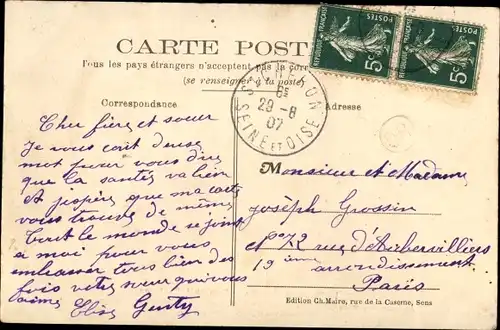 CARTE POST
Tous les pays étrangers n'acceptent pas la corr
(se renseigner à la poste)
Correspondance
Adresse
POSTES
REPUBLIQUE FRANÇAISE
5c
POSTES
5c
6
29-8
07
SEINE ET OISE
Cher frère et soeur
Je vous écrit deuse
mot pour vous dire
que la santés va bien
et j'espère que ma carte
vous trouve de même
tout le monde se joins
a moi pour vous
embrasser tous bien des
fois votre soeur qui vous
aime Elise Genty
Monsieur et Madame
joséph Grossin
n° 72 rue d'Aubervilliers
19 ième arrondissement
Paris
Edition Ch. Maire, rue de la Caserne, Sens